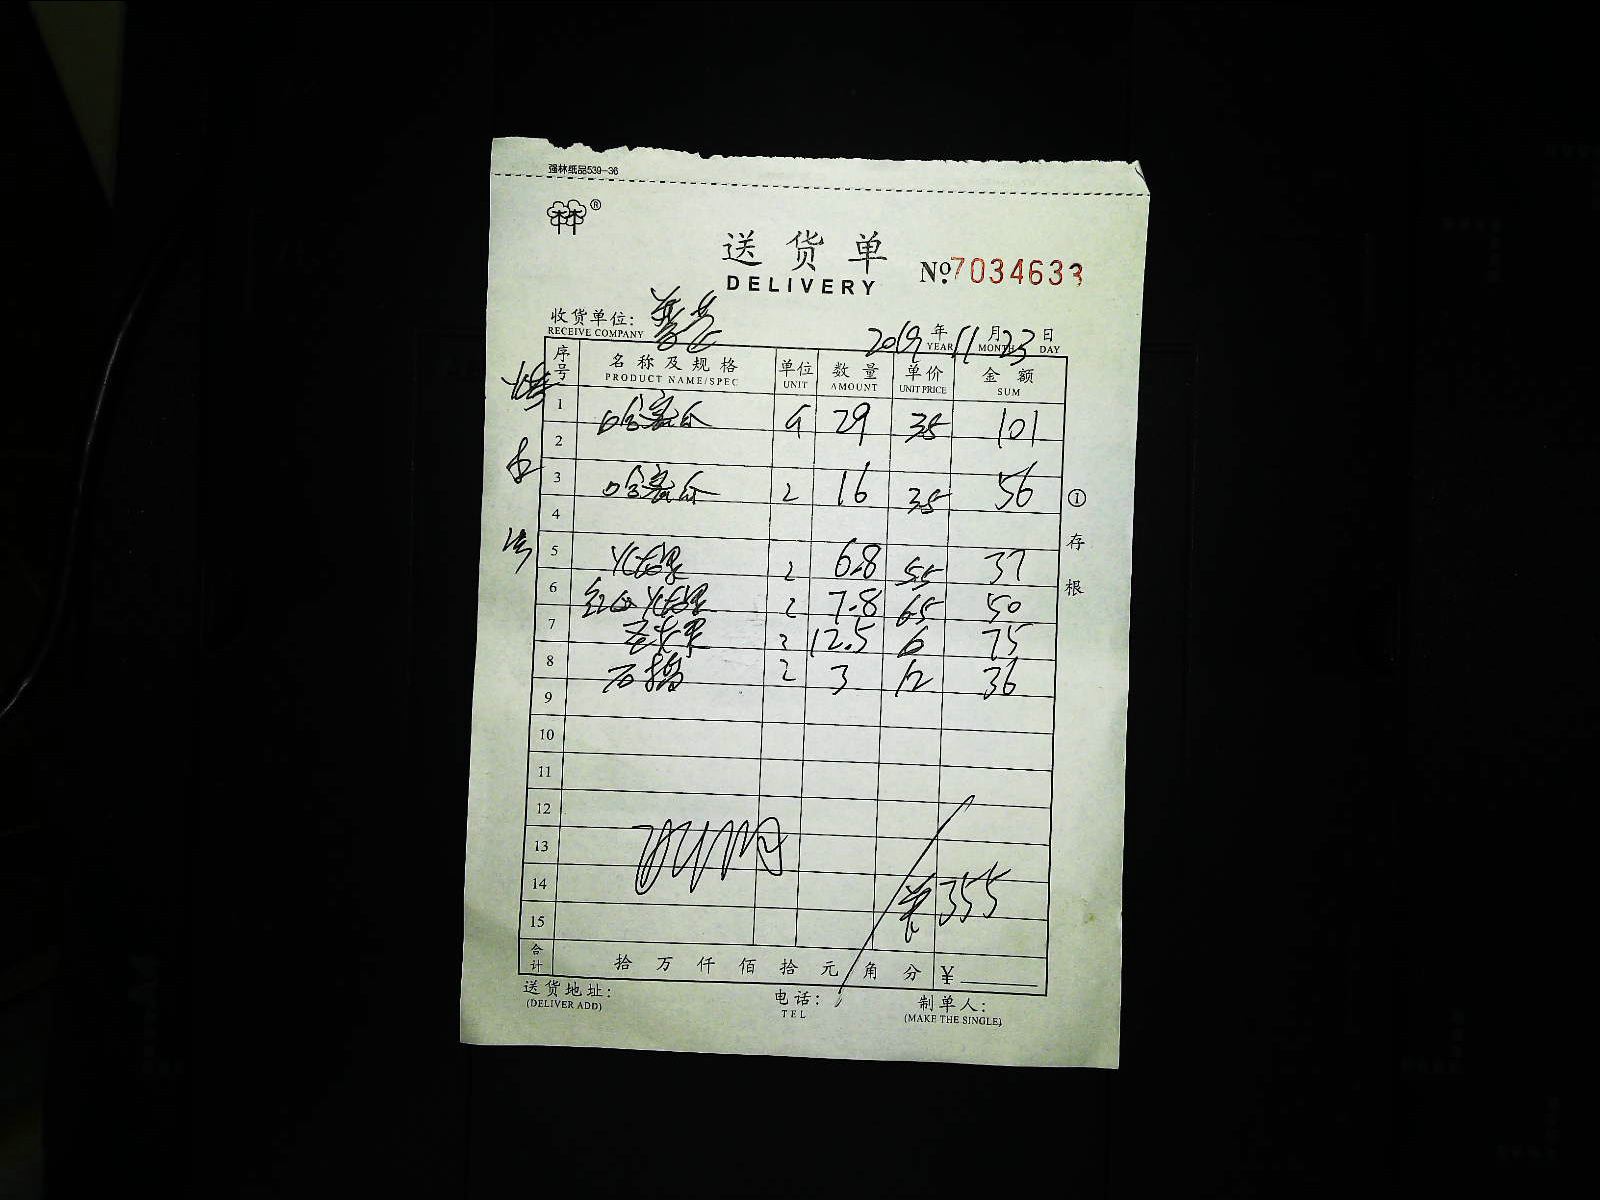 强林纸品539-36
®
送货单
DELIVERY
№7034633
收货单位:
RECEIVE COMPANY
2019年11月23日
YEAR MONTH DAY
序号 名称及规格 单位 数量 单价 金额
PRODUCT NAME/SPEC UNIT AMOUNT UNIT PRICE SUM
1 哈密瓜 29 35 101
2
3 哈密瓜 2 16 35 56
4
5 火龙果 2 6.8 55 37
6 红心火龙果 2 7.8 65 50
7 12.5 6 75
8 石榴 2 3 12 36
9
10
11
12
13
14 355
15
合计 拾 万 仟 佰 拾 元 角 分 ¥
送货地址:
(DELIVER ADD)
电话:
TEL
制单人:
(MAKE THE SINGLE)
① 存根